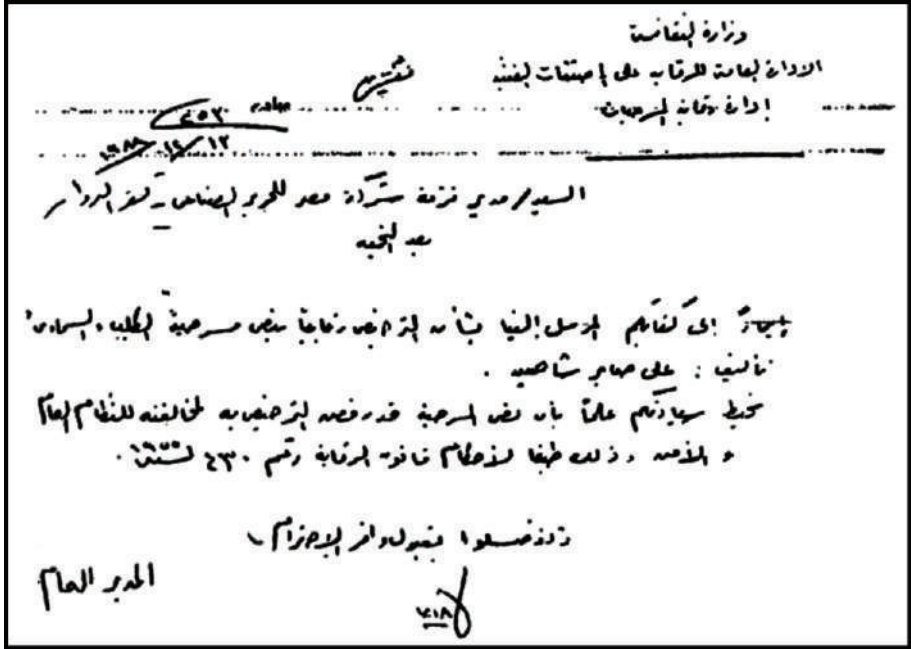 وزارة الثقافة
الادارة العامة للرقابة على المصنفات الفنية
إدارة رقابة المسرحيات
صادر ٢٥٣
١٣/١٢/١٩٨٨
السيد / مدير فرقة شركة مصر للحرير الصناعى - كفر الدوار
بعد التحية
إلى كتابكم المرسل إلينا بشأن الترخيص رقابيا بنص مسرحية
تأليف : على صابر شاهين .
نحيط سيادتكم علماً بأن نص المسرحية قد رفض الترخيص به لمخالفته للنظام العام
و الأمن وذلك طبقا لأحكام قانون الرقابة رقم ٤٣٠ لسنة ١٩٥٥ .
وتفضلوا بقبول وافر الاحترام
المدير العام